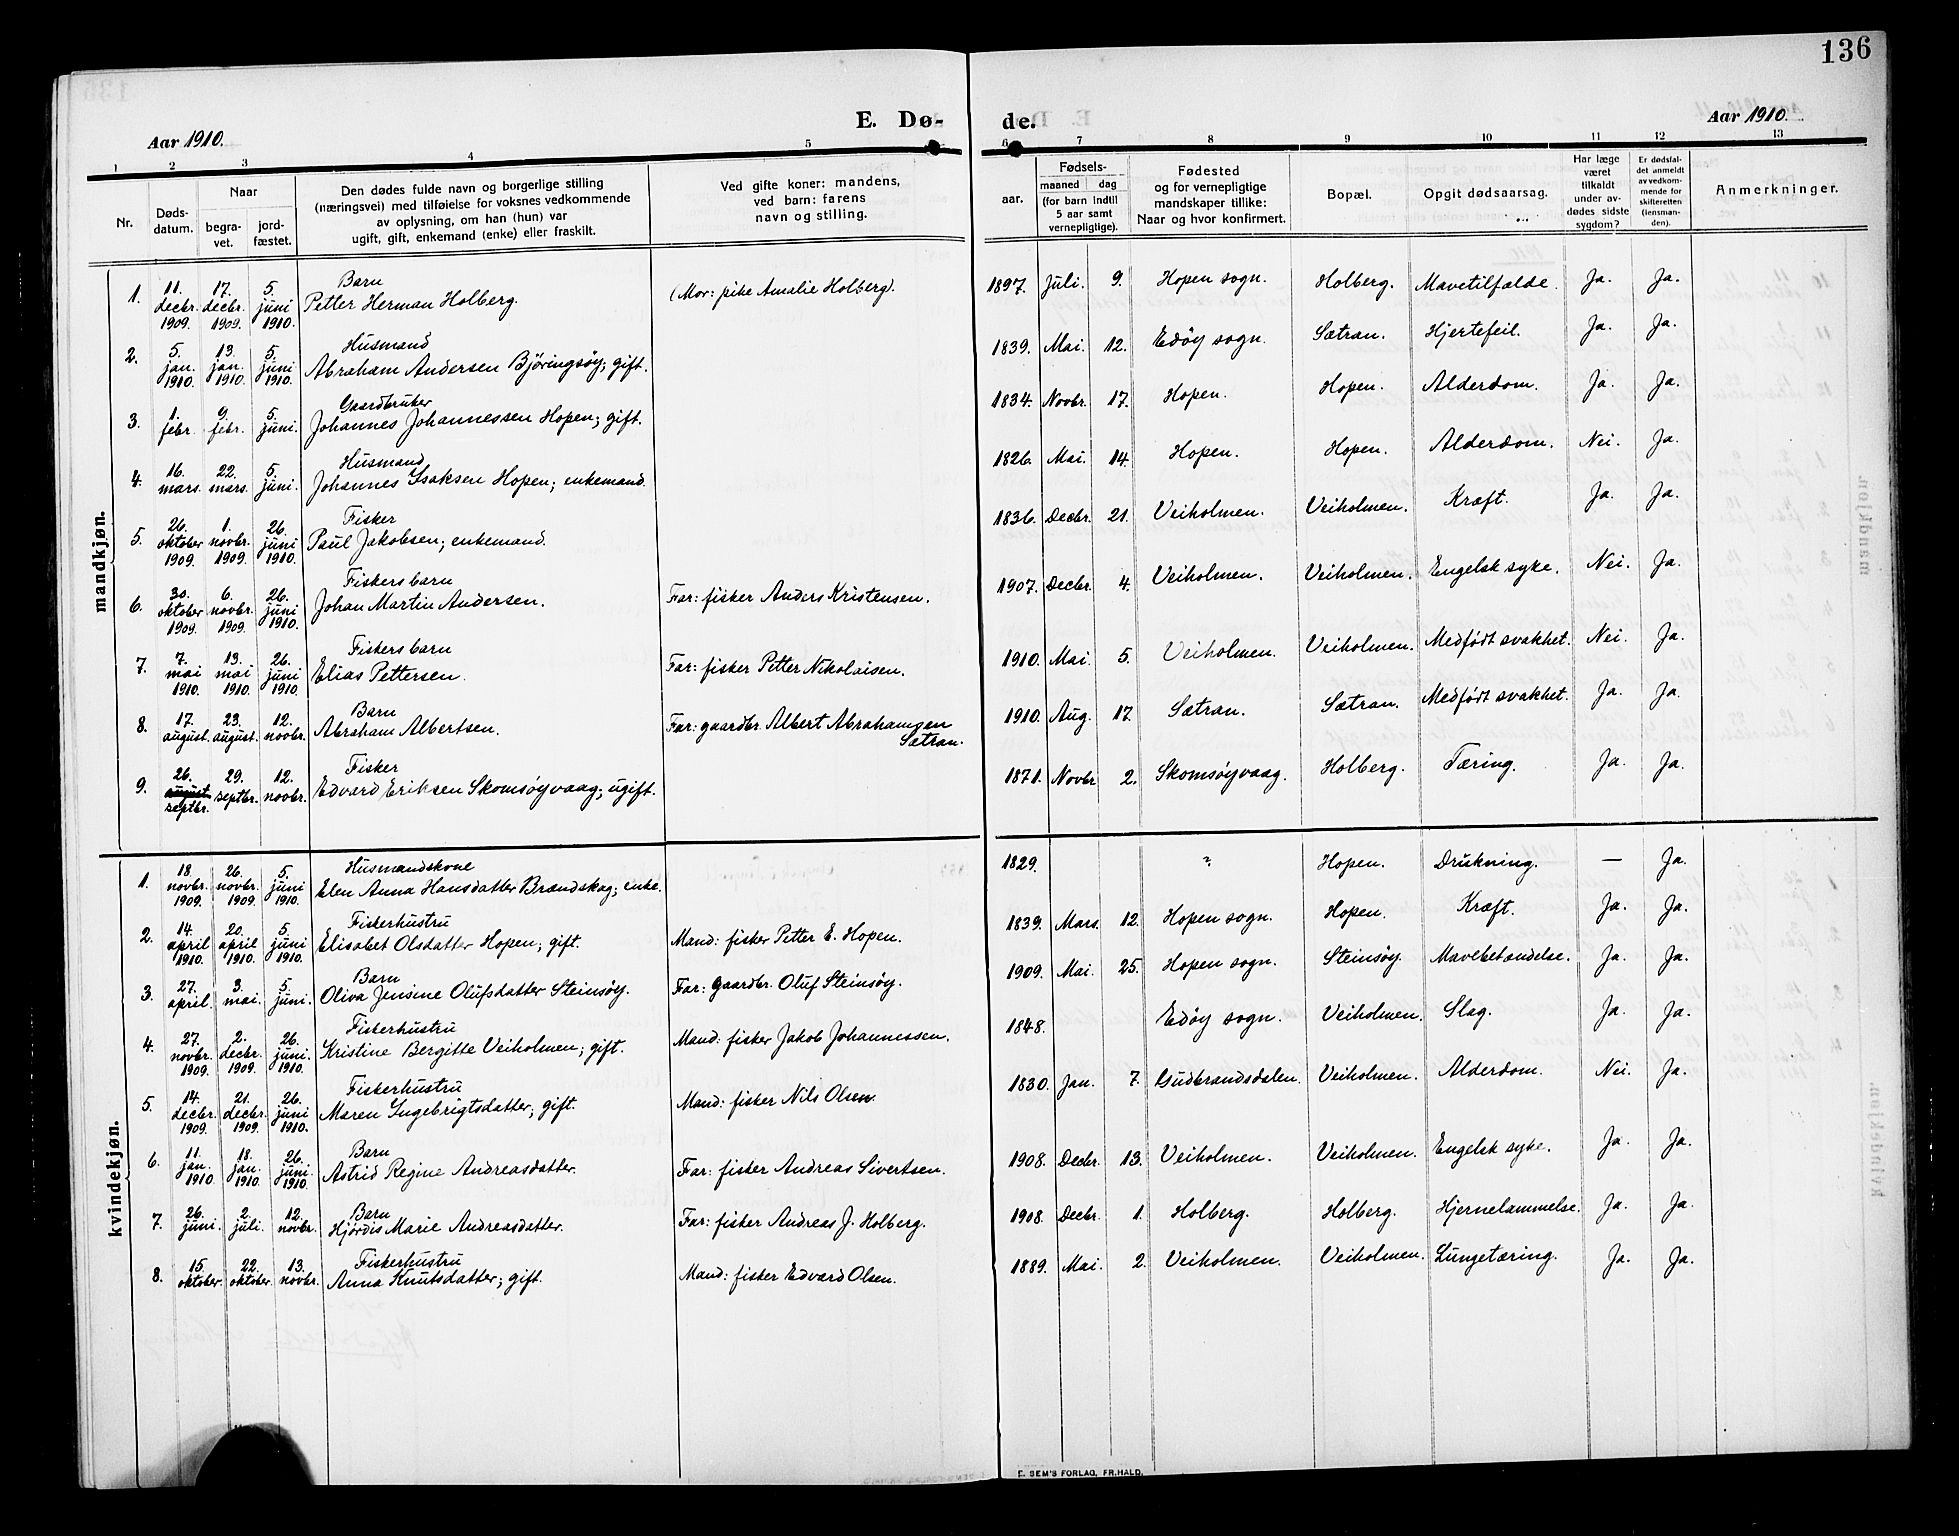 136
E. Dø- de.
Aar 1910. Aar 1910.
1 2 3 4 5 6 7 8 9 10 11 12 13
Nr.
Døds-
datum.
Naar
begra-
vet.
jord-
fæstet.
Den dødes fulde navn og borgerlige stilling
(næringsvei) med tilføielse for voksnes vedkommende
av oplysning, om han (hun) var
ugift, gift, enkemand (enke) eller fraskilt.
Ved gifte koner: mandens,
ved barn: farens
navn og stilling.
aar.
Fødsels-
maaned dag
(for barn indtil
5 aar samt
vernepligtige).
Fødested
og for vernepligtige
mandskaper tillike:
Naar og hvor konfirmert.
Bopæl.
Opgit dødsaarsag.
Har læge
været
tilkaldt
under av-
dødes sidste
sygdom?
Er dødsfal-
det anmeldt
av vedkom-
mende for
skifteretten
(lensman-
den).
Anmerkninger.
mandkjøn.
1. 11. decbr. 1909. 17. decbr. 1909. 5. juni 1910. Barn
Petter Herman Holberg. (Mor: pike Amalie Holberg). 1897. Juli. 9. Hopen sogn. Holberg. Mavetilfælde. Ja. Ja.
2. 5. jan. 1910. 13. jan. 1910. 5. juni 1910. Husmand
Abraham Andersen Björingsöy; gift. 1839. Mai. 12. Edöy sogn. Sætran. Hjertefeil. Ja. Ja.
3. 1. febr. 9. febr. 5. juni. Gaardbruker
Johannes Johannessen Hopen; gift. 1834. Novbr. 17. Hopen. Hopen. Alderdom. Ja. Ja.
4. 16. mars. 22. mars. 5. juni. Husmand
Johannes Isaksen Hopen; enkemand. 1826. Mai. 14. Hopen. Hopen. Alderdom. Nei. Ja.
5. 26. oktober 1909. 1. novbr. 1909. 26. juni 1910. Fisker
Paul Jakobsen; enkemand. 1836. Decbr. 21. Veiholmen. Veiholmen. Kræft. Ja. Ja.
6. 30. oktober 1909. 6. novbr. 1909. 26. juni 1910. Fiskers barn
Johan Martin Andersen. Far: fisker Anders Kristensen. 1907. Decbr. 4. Veiholmen. Veiholmen. Engelsk syke. Nei. Ja.
7. 7. mai 1910. 13. mai 1910. 26. juni 1910. Fiskers barn
Elias Pettersen. Far: fisker Petter Nikolaisen. 1910. Mai. 5. Veiholmen. Veiholmen. Medfödt svakhet. Nei. Ja.
8. 17. august. 23. august. 12. novbr. Barn
Abraham Albertsen. Far: gaardbr. Albert Abrahamsen
Sætran. 1910. Aug. 17. Sætran. Sætran. Medfödt svakhet. Ja. Ja.
9. 26. august septbr. 29. septbr. 12. novbr. Fisker
Edvard Eriksen Skomsöyvaag; ugift. 1871. Novbr 2. Skomsöyvaag. Holberg. Tæring. Ja. Ja.
kvindekjøn.
1. 18. novbr. 1909. 26. novbr. 1909. 5. juni 1910. Husmandskone
Elen Anna Hansdatter Brændskag; enke. 1829. ? Hopen. Drukning. — Ja.
2. 14. april 1910. 20. april 1910. 5. juni 1910. Fiskerhustru
Elisabet Olsdatter Hopen; gift. Mand: fisker Petter E. Hopen. 1839. Mars. 12. Hopen sogn. Hopen. Kræft. Ja. Ja.
3. 27. april. 3. mai. 5. juni. Barn
Oliva Jensine Olufsdatter Steinsöy. Far: gaardbr. Oluf Steinsöy. 1909. Mai. 25. Hopen sogn. Steinsöy. Mavebetændelse. Ja. Ja.
4. 27. novbr. 1909. 2. decbr. 1909. 26. juni. 1910. Fiskerhustru
Kristine Bergitte Veiholmen; gift. Mand: fisker Jakob Johannessen. 1848. Edöy sogn. Veiholmen. Slag. Ja. Ja.
5. 14. decbr. 1909. 21. decbr. 1909. 26. juni 1910. Fiskerhustru
Maren Ingebrigtsdatter; gift. Mand: fisker Nils Olsen. 1830. Jan. 7. Gudbrandsdalen. Veiholmen. Alderdom. Nei. Ja.
6. 11. jan. 1910 18. jan. 1910. 26. juni. 1910. Barn
Astrid Regine Andreasdatter. Far: fisker Andreas Sivertsen. 1908. Decbr. 13. Veiholmen. Veiholmen. Engelsk syke. Ja. Ja.
7. 26. juni. 2. juli. 12. novbr. Barn
Hjördis Marie Andreasdatter. Far: fisker Andreas J. Holberg. 1908. Decbr. 1. Holberg. Holberg. Hjernelammelse. Ja. Ja.
8. 15. oktober. 22. oktober. 13. novbr. Fiskerhustru
Anna Knutsdatter; gift. Mand: fisker Edvard Olsen. 1889. Mai. 2. Veiholmen. Veiholmen. Lungetæring. Ja. Ja.
E. SEM'S FORLAG, FR.HALD.